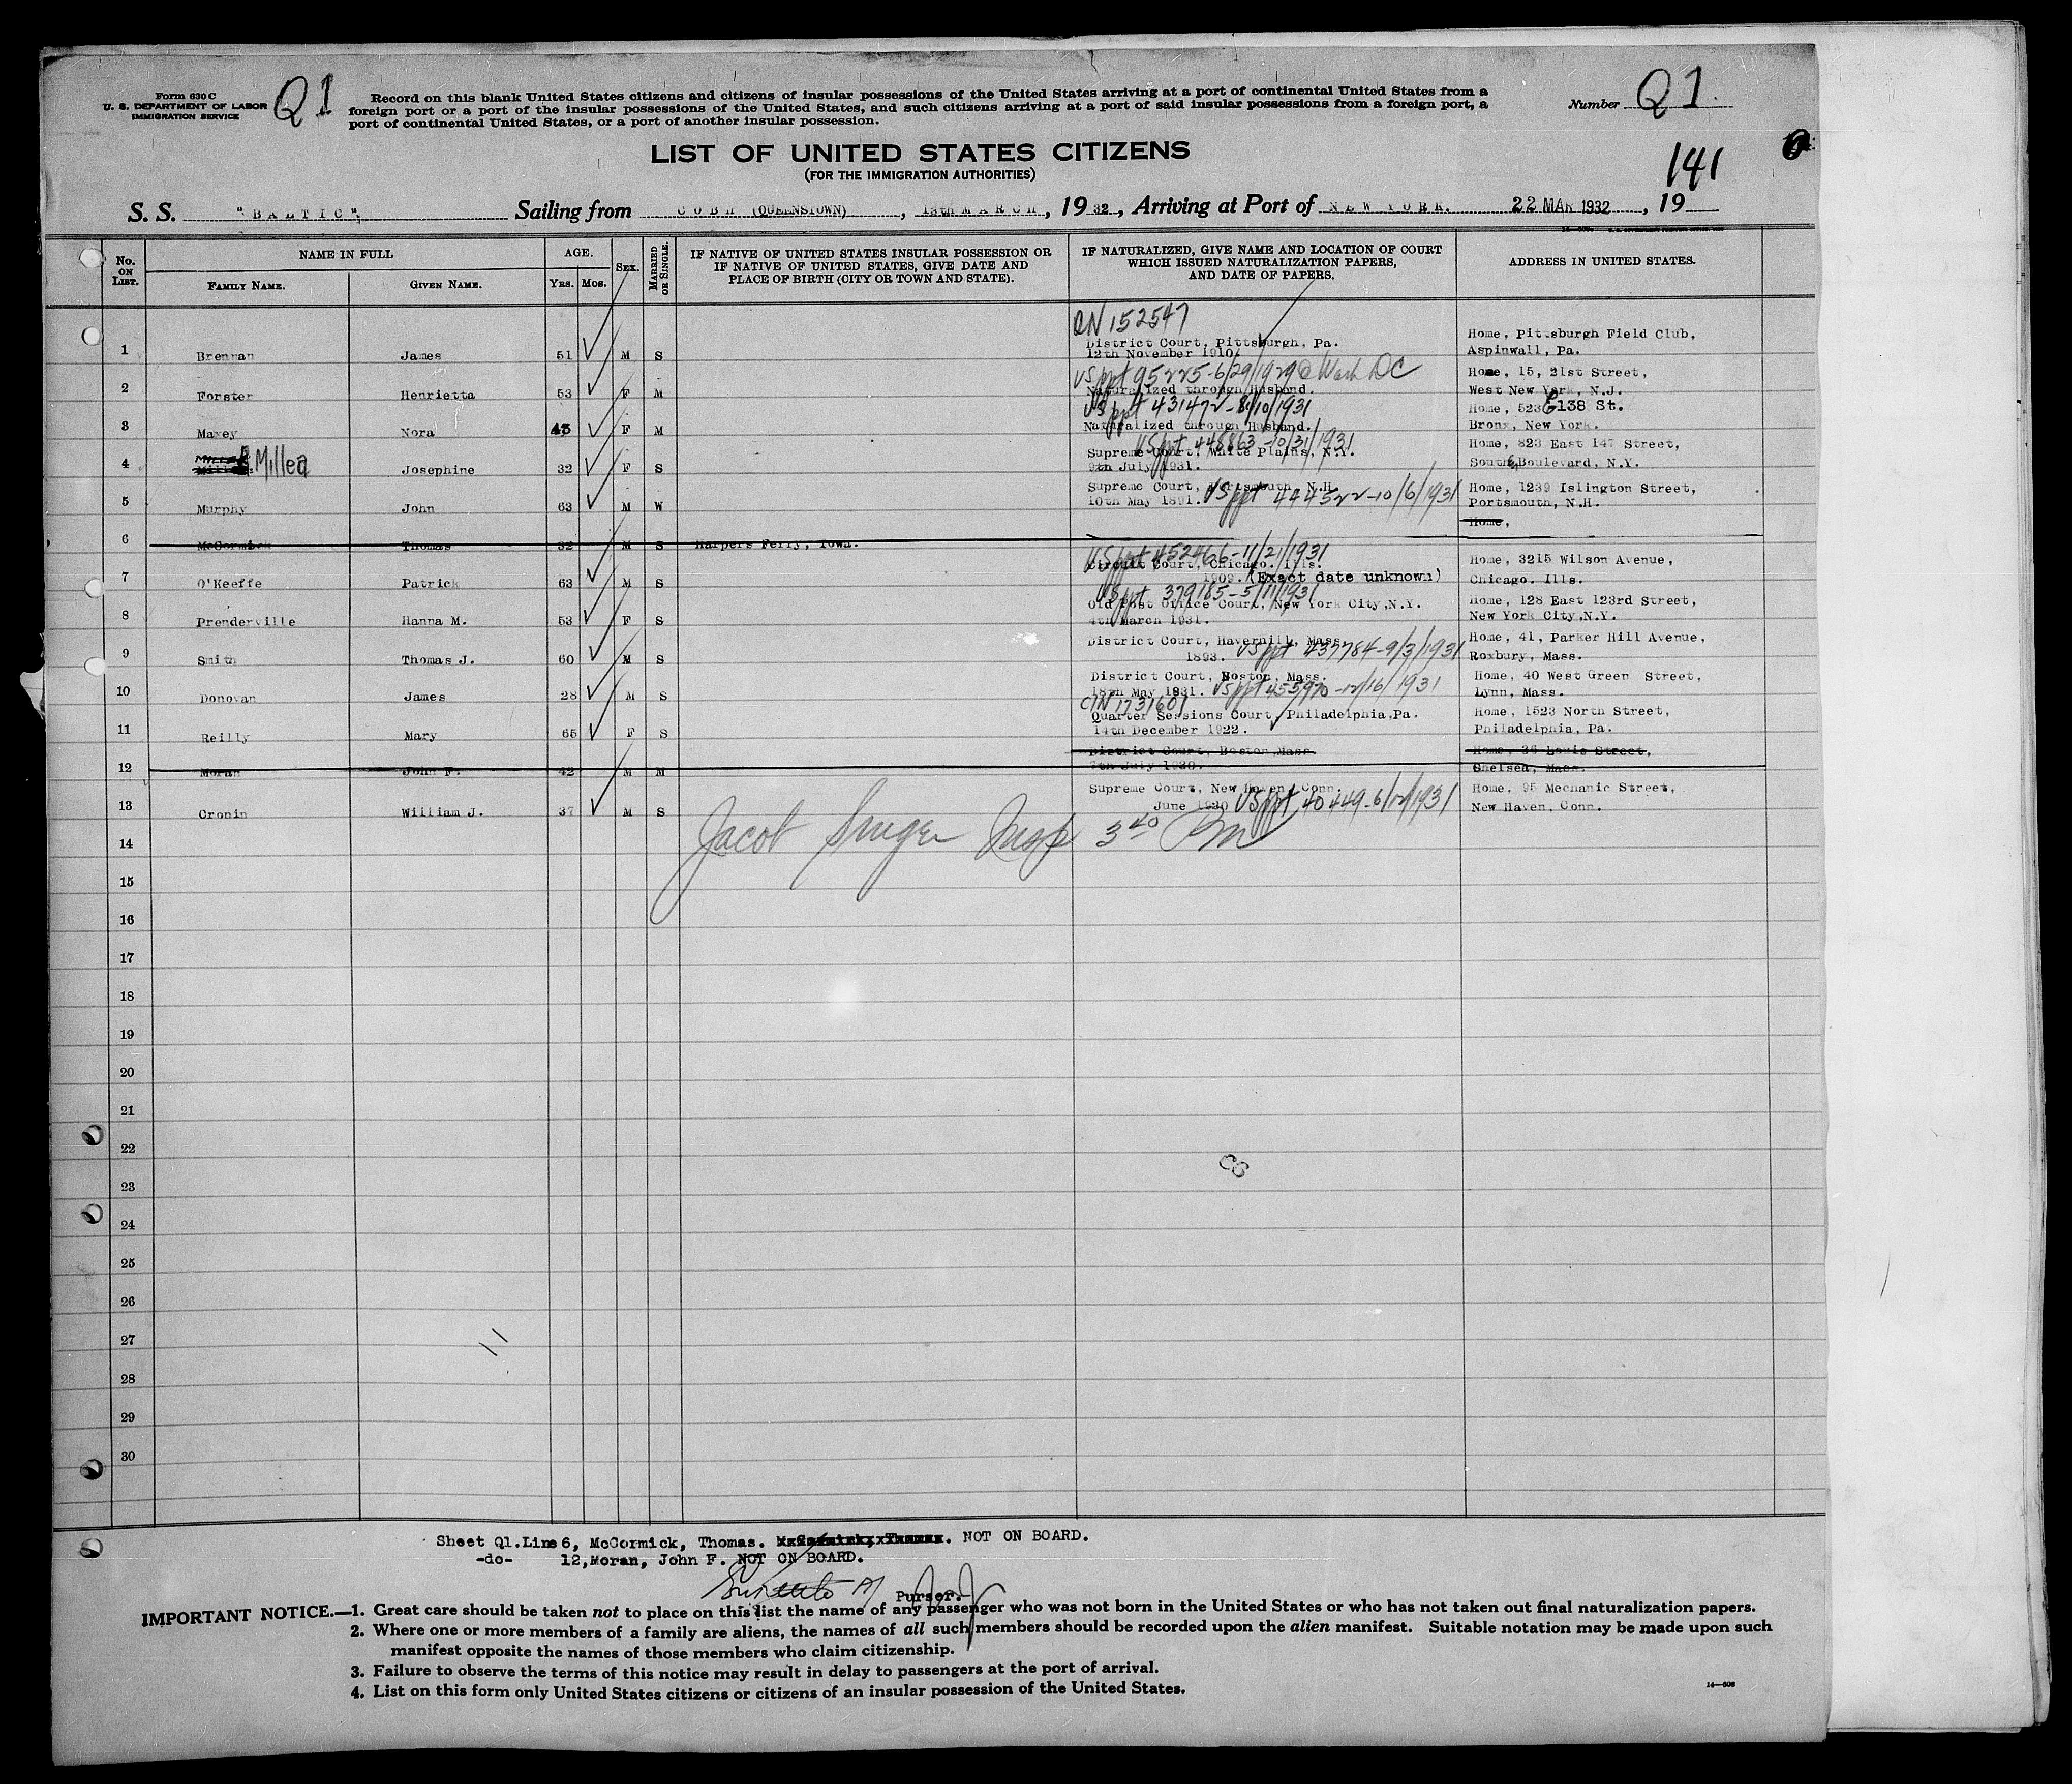 Form 630 C
U. S. DEPARTMENT OF LABOR
IMMIGRATION SERVICE
Q1
Record on this blank United States citizens and citizens of insular possessions of the United States arriving at a port of continental United States from a
foreign port or a port of the insular possessions of the United States, and such citizens arriving at a port of said insular possessions from a foreign port, a
port of continental United States, or a port of another insular possession.
Number Q1.
LIST OF UNITED STATES CITIZENS
(FOR THE IMMIGRATION AUTHORITIES)
141
S. S. "BALTIC", Sailing from COBH (QUEENSTOWN), 13th MARCH, 1932, Arriving at Port of NEW YORK. 22 MAR 1932, 19
No. ON LIST.
NAME IN FULL
FAMILY NAME.
GIVEN NAME.
AGE.
YRS.
MOS.
SEX.
MARRIED OR SINGLE.
IF NATIVE OF UNITED STATES INSULAR POSSESSION OR
IF NATIVE OF UNITED STATES, GIVE DATE AND
PLACE OF BIRTH (CITY OR TOWN AND STATE).
IF NATURALIZED, GIVE NAME AND LOCATION OF COURT
WHICH ISSUED NATURALIZATION PAPERS,
AND DATE OF PAPERS.
ADDRESS IN UNITED STATES.
1 Brennan James 51 M S
152547
District Court, Pittsburgh, Pa.
12th November 1910.
Home, Pittsburgh Field Club,
Aspinwall, Pa.
2 Forster Henrietta 53 F M
US ppt 95225-6/29/1929 @ Wash DC
Naturalized through Husband.
Home, 15, 21st Street,
West New York, N.J.
3 Maxey Nora 45 F M
US ppt 431472-8/10/1931
Naturalized through Husband.
Home, 523 E 138 St.
Bronx, New York.
4 Millea Josephine 32 F S
US ppt 448863-10/31/1931
Supreme Court, White Plains, N.Y.
9th July 1931.
Home, 823 East 147 Street,
South Boulevard, N.Y.
5 Murphy John 63 M W
Supreme Court, Portsmouth, N.H.
10th May 1891. US ppt 444522-10/6/1931
Home, 1239 Islington Street,
Portsmouth, N.H.
Home,
6 McCormick Thomas 32 M S Harpers Ferry, Iowa.
7 O'Keeffe Patrick 63 M S
US ppt 452466-11/21/1931
Circuit Court, Chicago. Ills.
1909. (Exact date unknown)
Home, 3215 Wilson Avenue,
Chicago. Ills.
8 Prenderville Hanna M. 53 F S
US ppt 379185-5/11/1931
Old Post Office Court, New York City,N.Y.
4th March 1931.
Home, 128 East 123rd Street,
New York City,N.Y.
9 Smith Thomas J. 60 M S
District Court, Haverhill, Mass.
1893. US ppt 437784-9/3/1931
Home, 41, Parker Hill Avenue,
Roxbury, Mass.
10 Donovan James 28 M S
District Court, Boston, Mass.
18th May 1931. US ppt 455970-12/16/1931
Home, 40 West Green Street,
Lynn, Mass.
11 Reilly Mary 65 F S
C/N 1731601
Quarter Sessions Court, Philadelphia,Pa.
14th December 1922.
Home, 1523 North Street,
Philadelphia, Pa.
12 Moran John F. 42 M M
District Court, Boston Mass.
7th July 1930.
Home, 36 Louis Street,
Chelsea, Mass.
13 Cronin William J. 37 M S
Supreme Court, New Haven, Conn.
June 1930 US ppt 40449-6/12/1931
Home, 95 Mechanic Street,
New Haven, Conn.
Jacob Singer Insp 3 40 Pm
14
15
16
17
18
19
20
21
22
23
24
25
26
27
28
29
30
Sheet Q1.Line 6, McCormick, Thomas. NOT ON BOARD.
-do- 12,Moran, John F. NOT ON BOARD.
Purser.
IMPORTANT NOTICE.—1. Great care should be taken not to place on this list the name of any passenger who was not born in the United States or who has not taken out final naturalization papers.
2. Where one or more members of a family are aliens, the names of all such members should be recorded upon the alien manifest. Suitable notation may be made upon such
manifest opposite the names of those members who claim citizenship.
3. Failure to observe the terms of this notice may result in delay to passengers at the port of arrival.
4. List on this form only United States citizens or citizens of an insular possession of the United States.
14—606